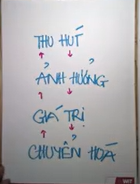 THU HÚT
ẢNH HƯỞNG
GIÁ TRỊ
CHUYỂN HOÁ